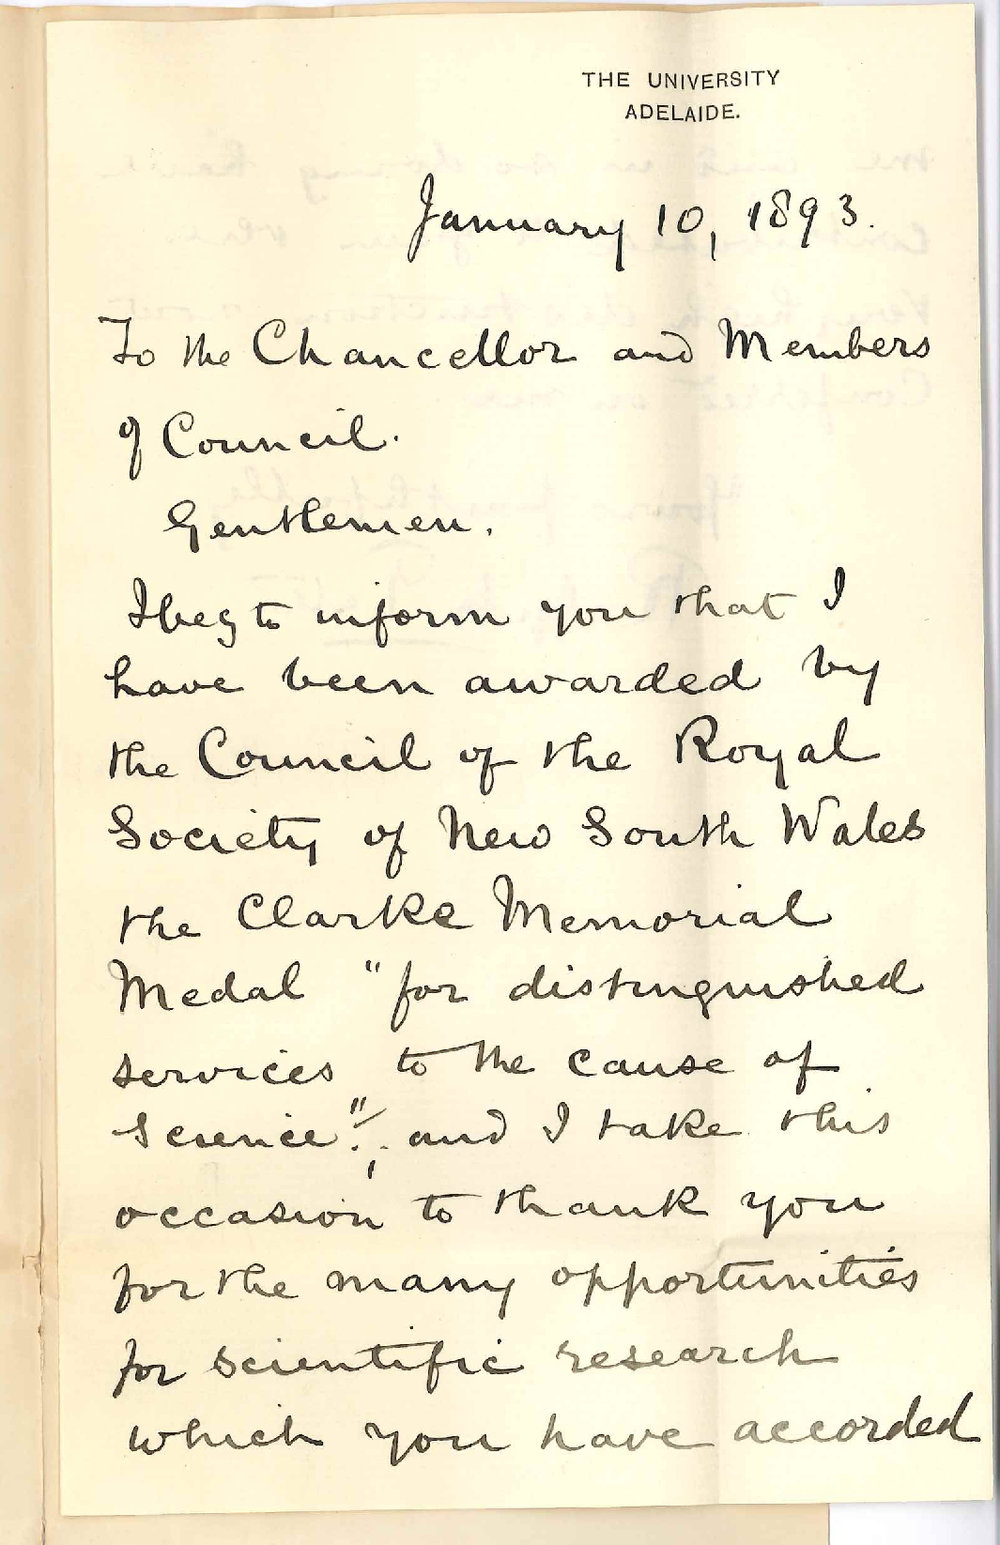 THE UNIVERSITY
ADELAIDE.
January 10, 1893.
To the Chancellor and Members
of Council.
Gentlemen.
I beg to inform you that I
have been awarded by
the Council of the Royal
Society of New South Wales
the Clarke Memorial
Medal "for distinguished
services to the cause of
Science", and I take this
occasion to thank you
for the many opportunities
for scientific research
which you have accorded